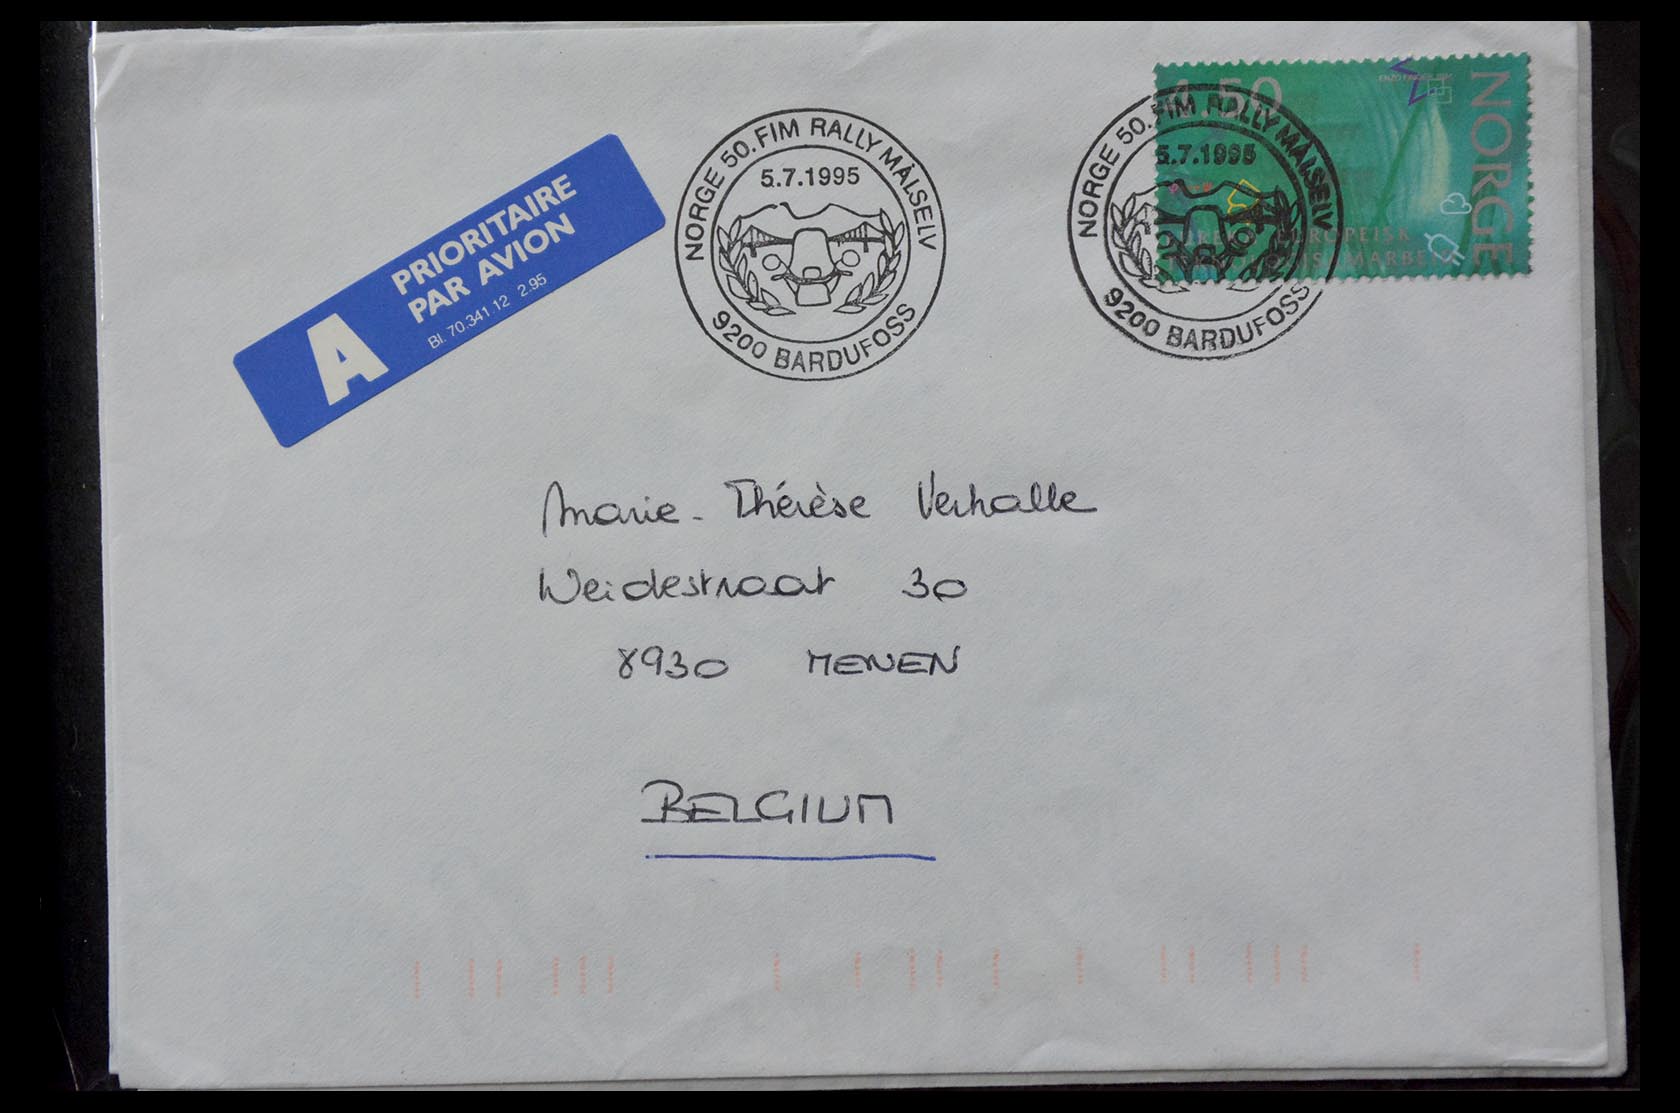 PRIORITAIRE
PAR AVION
A
Bl. 70.341 12 2.95
NORGE 50. FIM RALLY MÅLSELV
5.7.1995
9200 BARDUFOSS
NORGE 50. FIM RALLY MÅLSELV
5.7.1995
9200 BARDUFOSS
4.50
NORGE
ENZO FINGER
EUROPEISK
Marie-Thérèse Verhalle
Weidestraat 30
8930 MENEN
BELGIUM